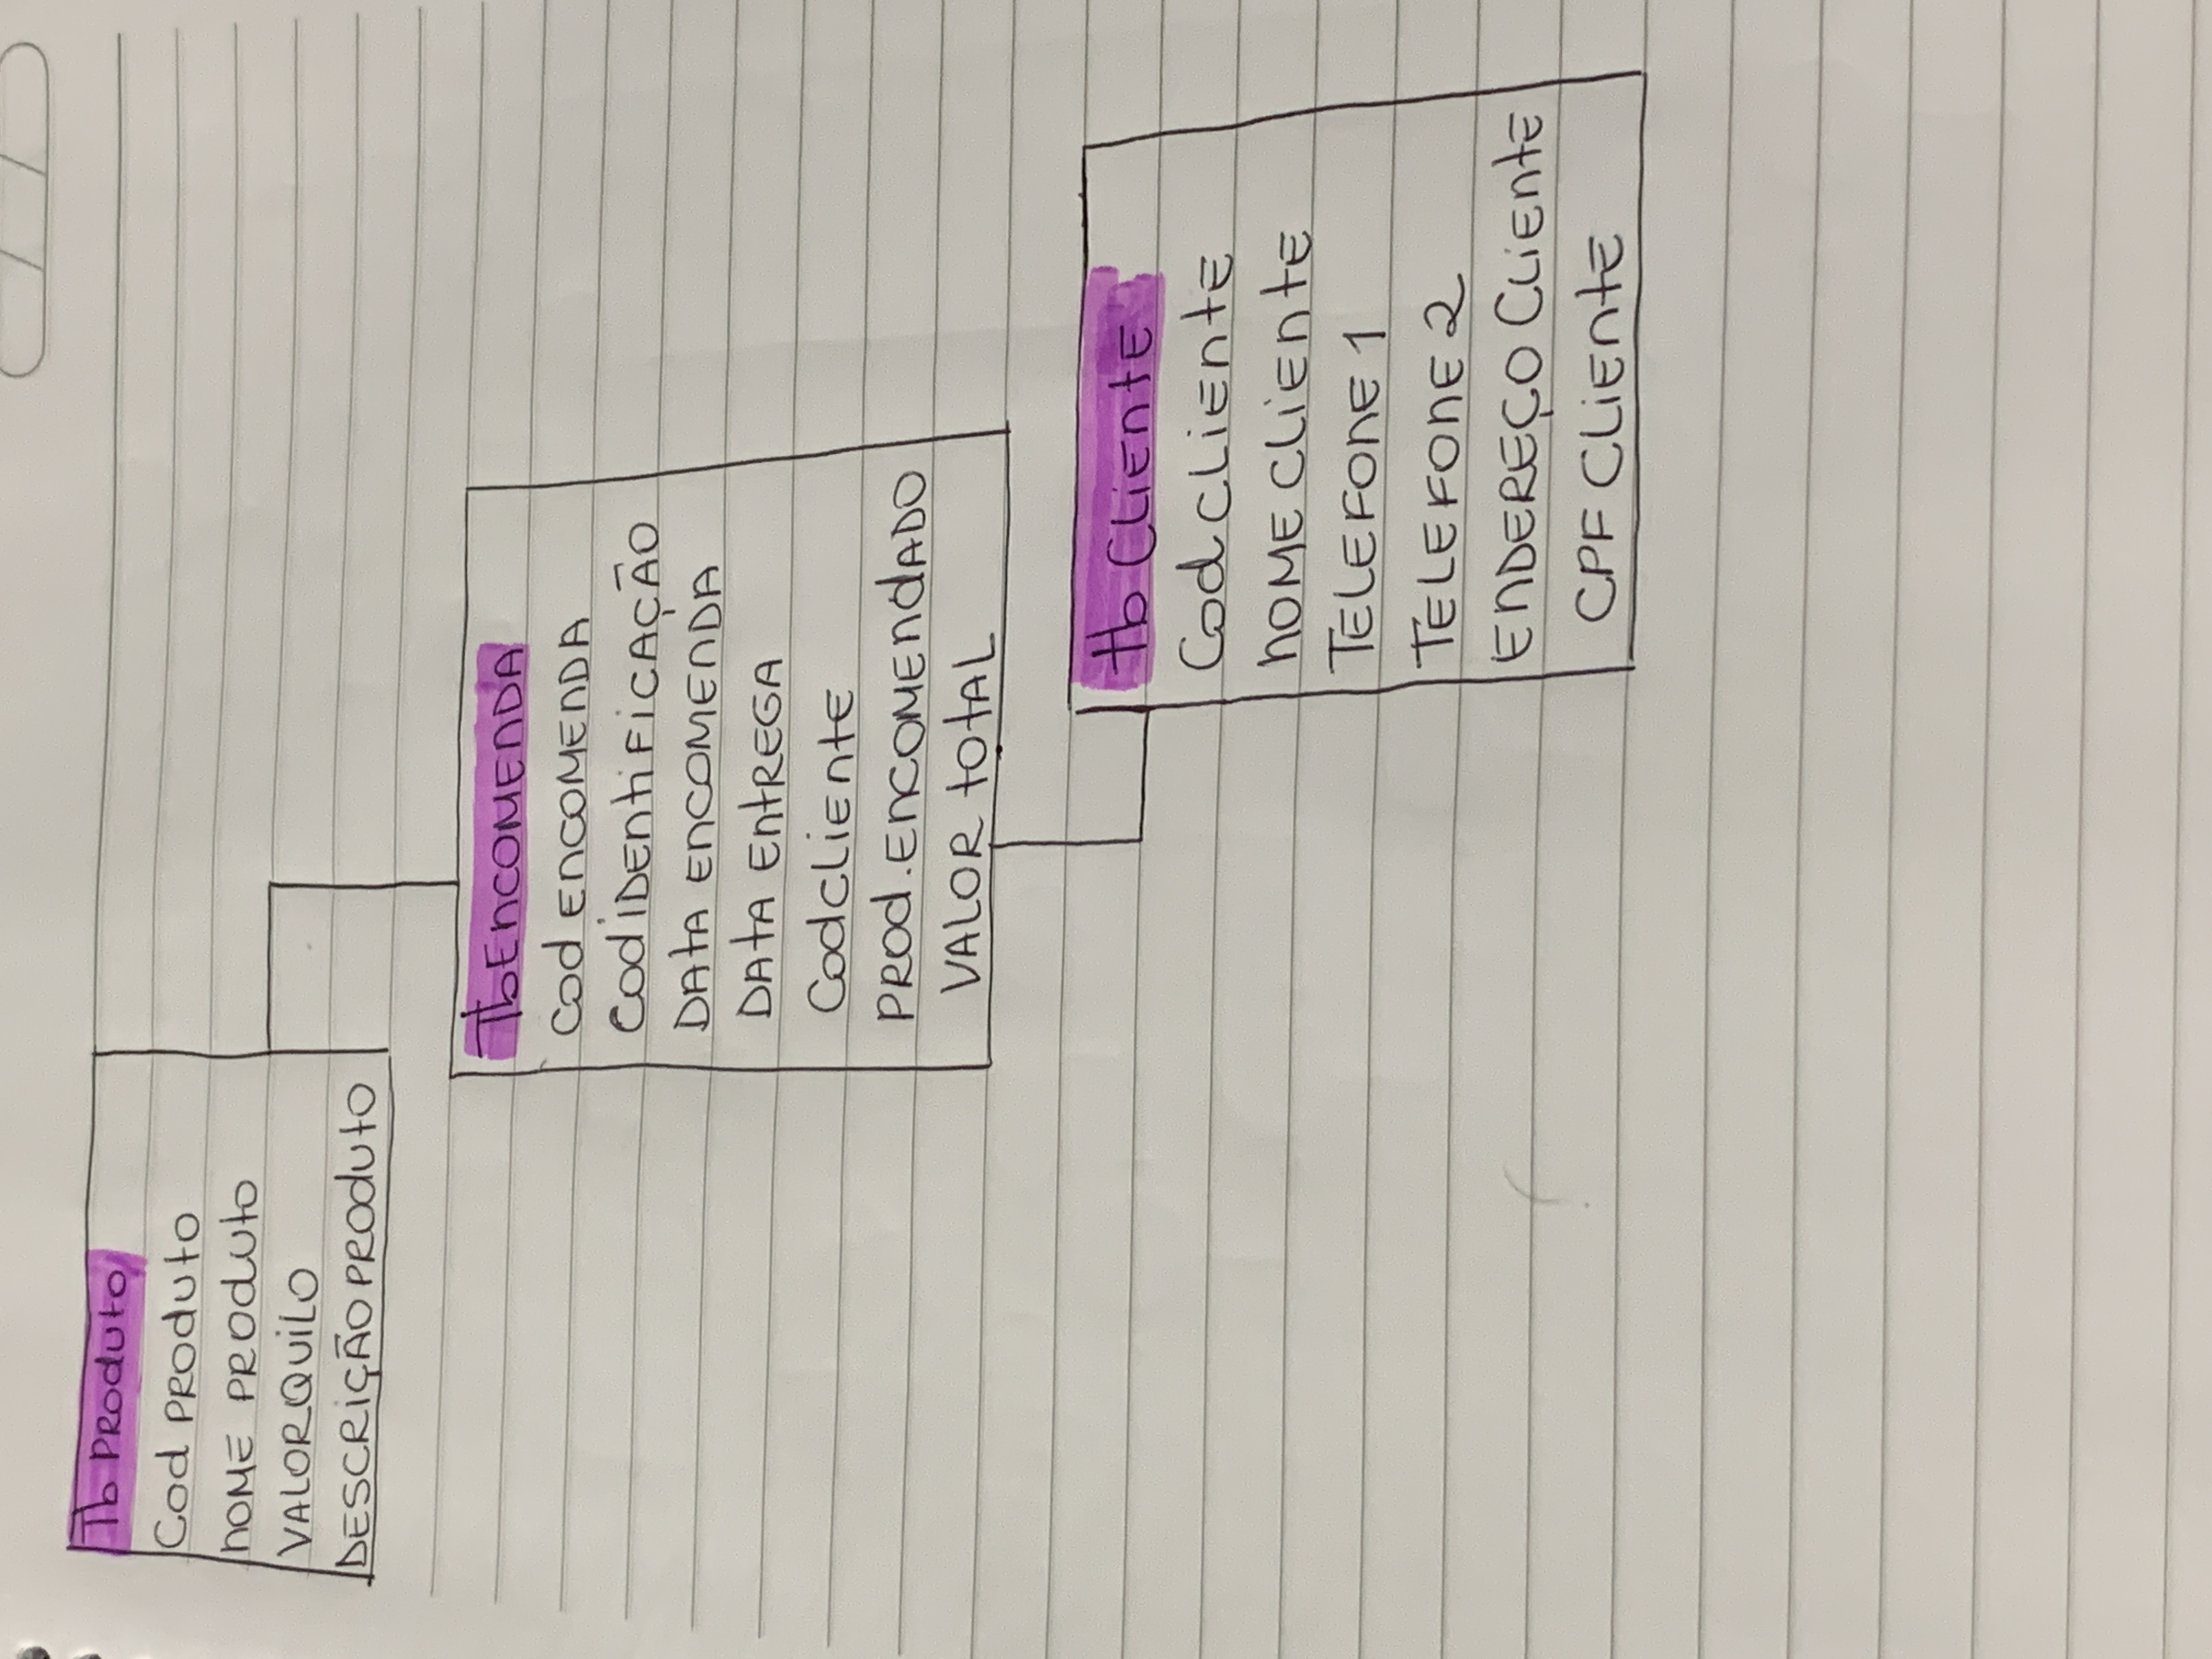 Tb PRODUTO
Cod PRODUTO
NOME PRODUTO
VALORQUILO
DESCRIÇÃO PRODUTO
TbENCOMENDA
Cod ENCOMENDA
Cod IDENTIFICAÇÃO
DATA ENCOMENDA
DATA ENTREGA
CodCLIENTE
PROD.ENCOMENDADO
VALOR TOTAL
tb CLIENTE
Cod CLIENTE
NOME CLIENTE
TELEFONE 1
TELEFONE 2
ENDEREÇO CLIENTE
CPF CLIENTE